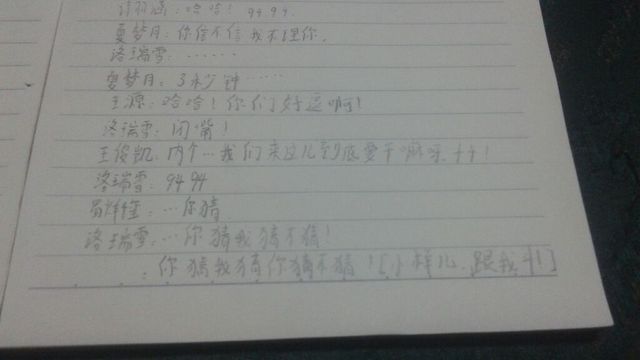 诗羽涵：哈哈！9494.
夏梦月：你信不信我不理你.
洛瑞雪：……
夏梦月：3秒钟……
王源：哈哈！你们好逗啊！
洛瑞雪：闭嘴！
王俊凯：内个…我们来这儿到底要干嘛呀.++！
洛瑞雪：9494
易烊千玺：…你猜
洛瑞雪：…你猜我猜不猜！
：你猜我猜你猜不猜！[小样儿.跟我斗]